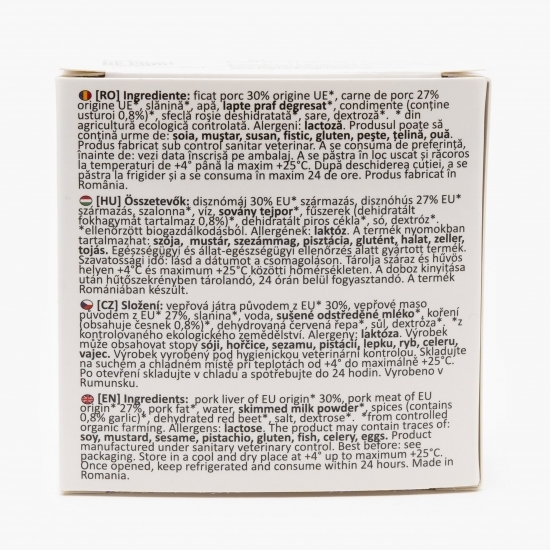 [RO] Ingrediente: ficat porc 30% origine UE*, carne de porc 27%
origine UE*, slănină*, apă, lapte praf degresat*, condimente (conține
usturoi 0,8%)*, sfeclă roșie deshidratată*, sare, dextroză*. * din
agricultură ecologică controlată. Alergeni: lactoză. Produsul poate să
conțină urme de: soia, muștar, susan, fistic, gluten, pește, țelină, ouă.
Produs fabricat sub control sanitar veterinar. A se consuma de preferință,
înainte de: vezi data înscrisă pe ambalaj. A se păstra în loc uscat și răcoros
la temperaturi de +4° până la maxim +25°C. După deschiderea cutiei, a se
păstra la frigider și a se consuma în maxim 24 de ore. Produs fabricat în
România.
[HU] Összetevők: disznómáj 30% EU* származás, disznóhús 27% EU*
származás, szalonna*, víz, sovány tejpor*, fűszerek (dehidratált
fokhagymát tartalmaz 0,8%)*, dehidratált piros cékla*, só, dextróz*.
*ellenőrzött biogazdálkodásból. Allergének: laktóz. A termék nyomokban
tartalmazhat: szója, mustár, szezámmag, pisztácia, glutént, halat, zeller,
tojás. Egészségügyi és állat-egészségügyi ellenőrzés alatt gyártott termék.
Szavatossági idő: lásd a dátumot a csomagoláson. Tárolja száraz és hűvös
helyen +4°C és maximum +25°C közötti hőmérsékleten. A doboz kinyitása
után hűtőszekrényben tárolandó, 24 órán belül fogyasztandó. A termék
Romániában készült.
[CZ] Složení: vepřová játra původem z EU* 30%, vepřové maso
původem z EU* 27%, slanina*, voda, sušené odstředěné mléko*, koření
(obsahuje česnek 0,8%)*, dehydrovaná červená řepa*, sůl, dextróza*. *z
kontrolovaného ekologického zemědělství. Alergeny: laktóza. Výrobek
může obsahovat stopy sóji, hořčice, sezamu, pistácií, lepku, ryb, celeru,
vajec. Výrobek vyrobený pod hygienickou veterinární kontrolou. Skladujte
na suchém a chladném místě při teplotách od +4° do maximálně +25°C.
Po otevření skladujte v chladu a spotřebujte do 24 hodin. Vyrobeno v
Rumunsku.
[EN] Ingredients: pork liver of EU origin* 30%, pork meat of EU
origin* 27%, pork fat*, water, skimmed milk powder*, spices (contains
0,8% garlic)*, dehydrated red beet*, salt, dextrose*. *from controlled
organic farming. Allergens: lactose. The product may contain traces of:
soy, mustard, sesame, pistachio, gluten, fish, celery, eggs. Product
manufactured under sanitary veterinary control. Best before: see
packaging. Store in a cool and dry place at +4° up to maximum +25°C.
Once opened, keep refrigerated and consume within 24 hours. Made in
Romania.